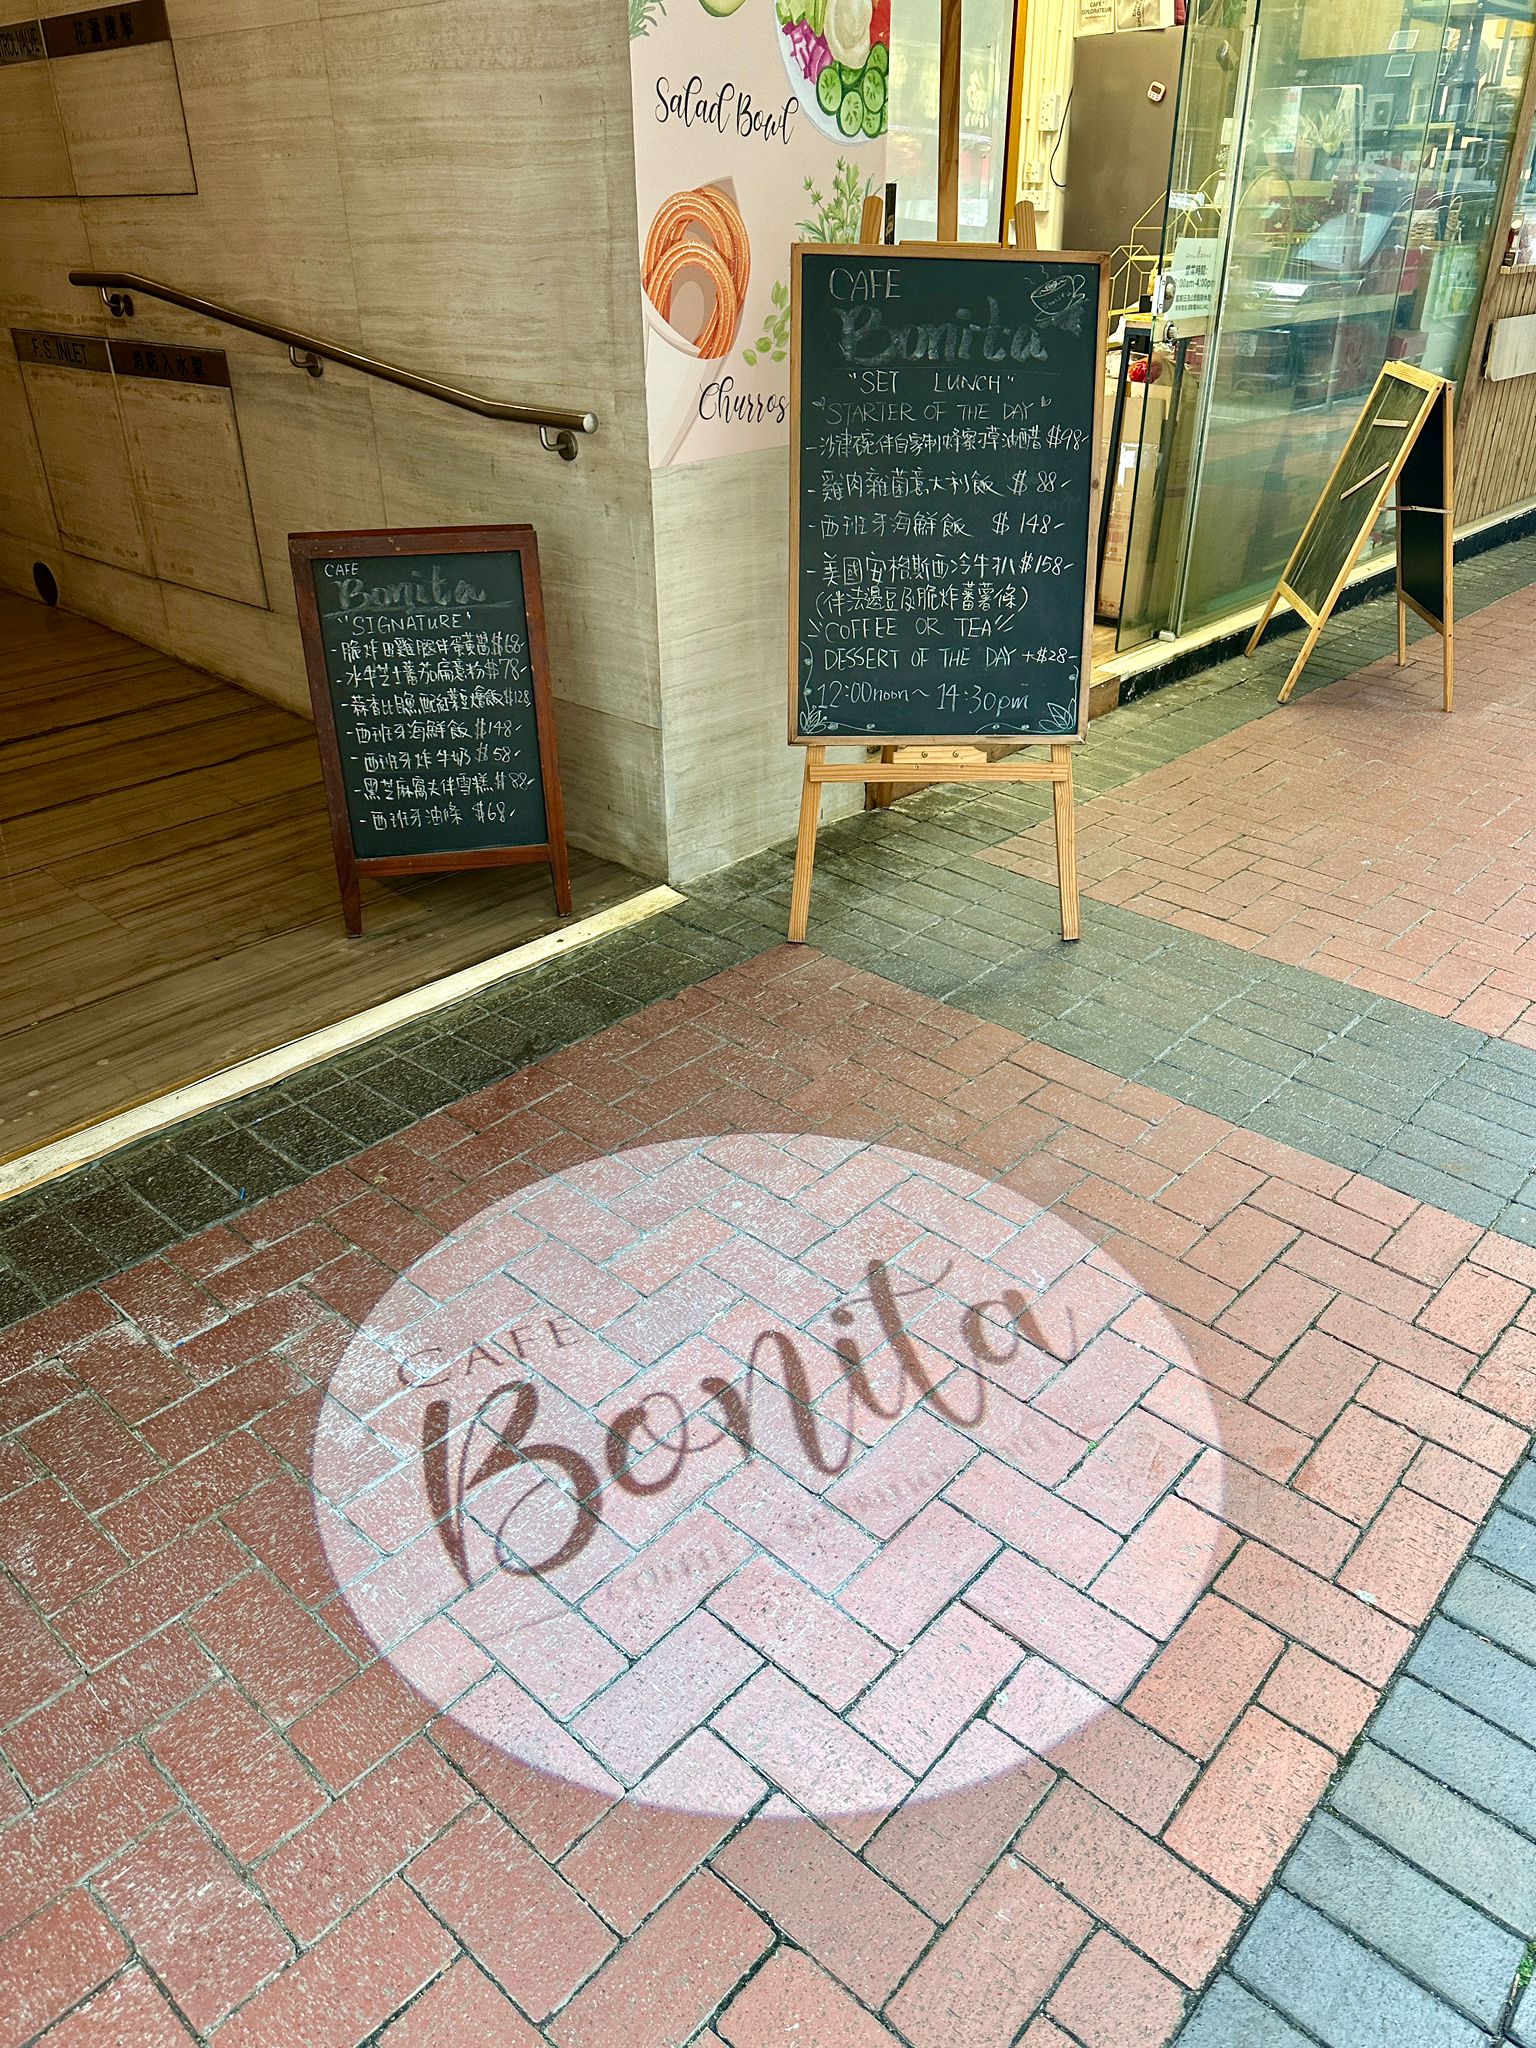 花灑總掣
F.S. INLET
消防入水掣
Salad Bowl
Churros
CAFE
Bonita
"SIGNATURE"
-水牛芝士蕃茄扁意粉$78-
-西班牙海鮮飯 $148-
-西班牙炸牛奶 $58-
-黑芝麻窩夫伴雪糕 $88-
-西班牙油條 $68-
CAFE
Bonita
"SET LUNCH"
"STARTER OF THE DAY"
-沙律碗伴自家制蜂蜜 油醋 $98-
-雞肉雜菌意大利飯 $ 88-
-西班牙海鮮飯 $ 148-
-美國安格斯西冷牛扒 $158-
(伴法邊豆及脆炸蕃薯條)
COFFEE OR TEA
DESSERT OF THE DAY +$28-
12:00noon~ 14:30pm
營業時間:
CAFE
Bonita